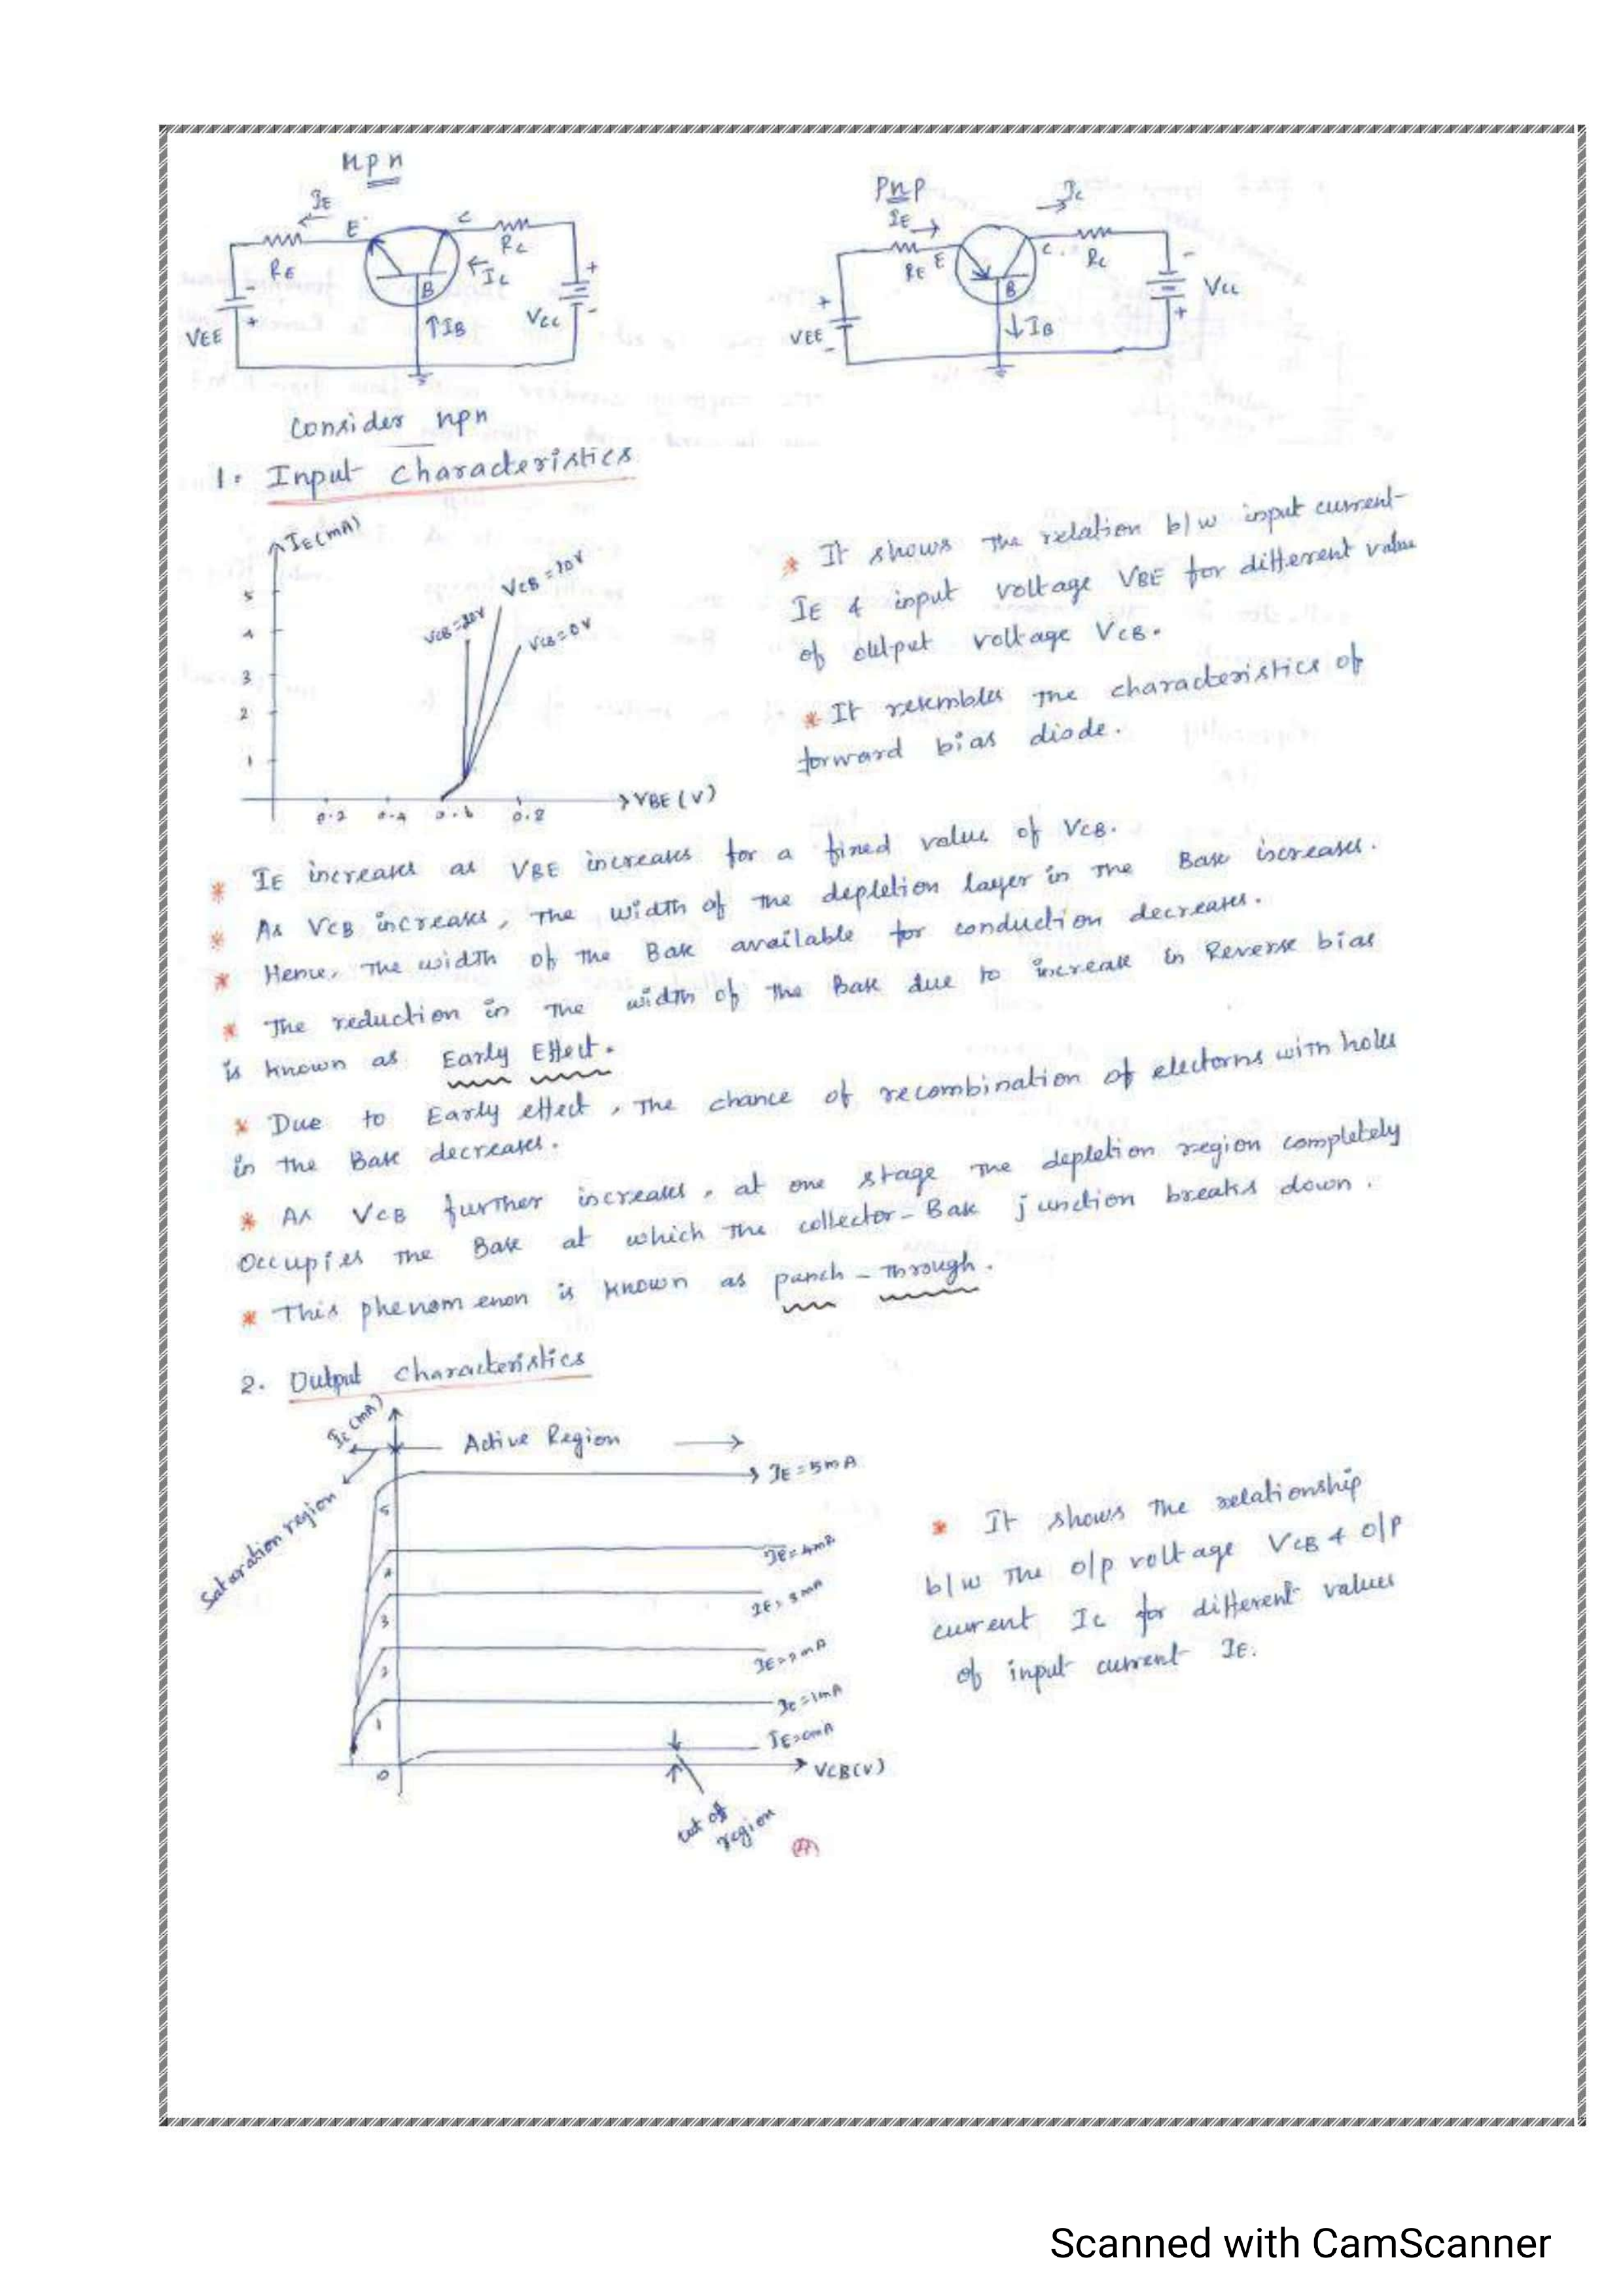 npn
IE
E
C
RE
RC
IC
B
-
+
VEE
IB
VCC
+
-
Pnp
IE
IC
RE
E
C
RC
B
+
-
VEE
IB
-
+
VCC
Consider npn
1. Input characteristics
IE (mA)
VCB = 10V
VCB = 0V
5
4
3
2
1
0.2 0.4 0.6 0.8
VBE (V)
* It shows the relation b/w input current
IE & input voltage VBE for different value
of output voltage VCB.
* It resembles the characteristics of
forward bias diode.
* IE increases as VBE increases for a fixed value of VCB.
* As VCB increases, the width of the depletion layer in the Base increases.
* Hence, the width of the Base available for conduction decreases.
* The reduction in the width of the Base due to increase in Reverse bias
is known as Early Effect.
* Due to Early effect, the chance of recombination of electorns with holes
in the Base decreases.
* As VCB further increases, at one stage the depletion region completely
Occupies the Base at which the collector-Base junction breaks down.
* This phenomenon is known as panch-through.
2. Output characteristics
IC (mA)
Active Region
Saturation region
IE = 5mA
IE = 4mA
IE = 3mA
IE = 2mA
IE = 1mA
IE = 0mA
5
4
3
2
1
0
VCB (V)
cut off
region
* It shows the relationship
b/w the o/p voltage VCB & o/p
current IC for different values
of input current IE.
Scanned with CamScanner